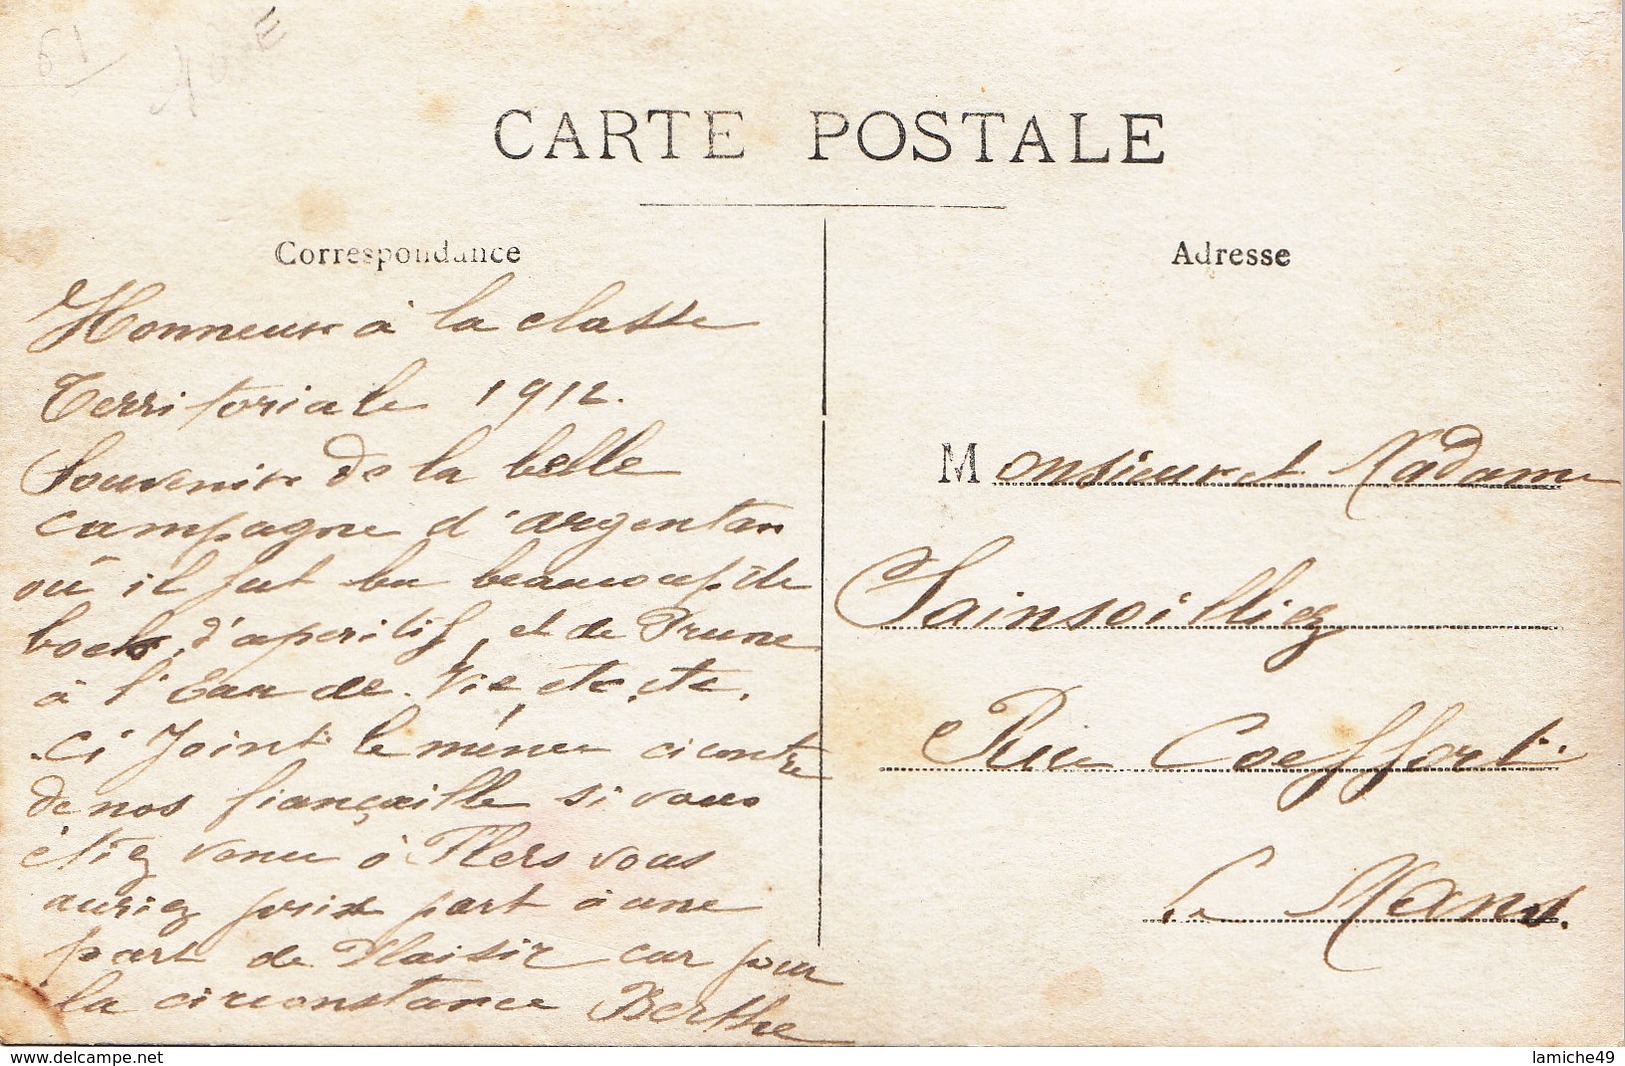 61
CARTE POSTALE
Correspondance
Honneur à la classe
Territoriale 1912.
Souvenir de la belle
campagne d'argentan
où il fut bu beaucoup de
bocks, d'aperitif, et de Prune
à l'Eau de Vie, etc, etc.
Ci Joint le menu ci contre
de nos fiançaille si vous
étiez venu à Flers vous
auriez prix part à une
part de Plaisir car pour
la circonstance Berthe
Adresse
Monsieur et Madame
Sainsoilliez
Rue Coeffort
Le Mans.
www.delcampe.net
lamiche49